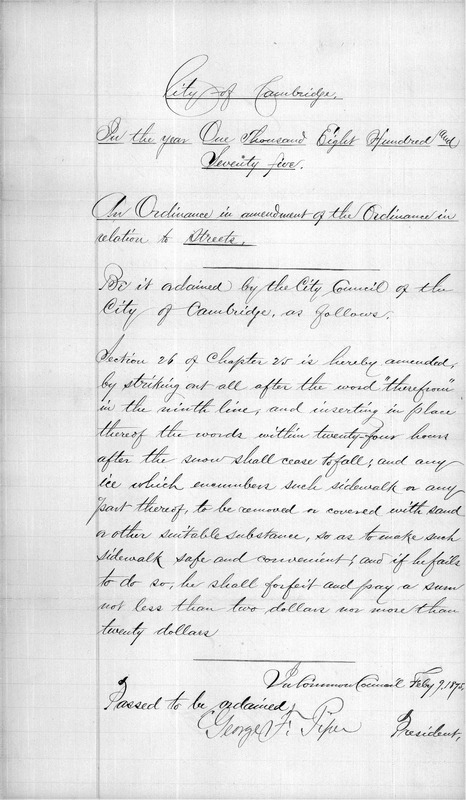 City of Cambridge.
In the year One Thousand Eight Hundred and
Seventy five.
An Ordinance in amendment of the Ordinance in
relation to Streets.
Be it ordained by the City Council of the
City of Cambridge, as follows.
Section 26 of Chapter 25 is hereby amended,
by striking out all after the word "therefrom"
in the ninth line, and inserting in place
thereof the words within twenty-four hours
after the snow shall cease to fall; and any
ice which encumbers such sidewalk or any
part thereof, to be removed or covered with sand
or other suitable substance, so as to make such
sidewalk safe and convenient; and if he fails
to do so, he shall forfeit and pay a sum
not less than two dollars nor more than
twenty dollars
In Common Council Feby 9, 1875
Passed to be ordained,
George F. Piper President,